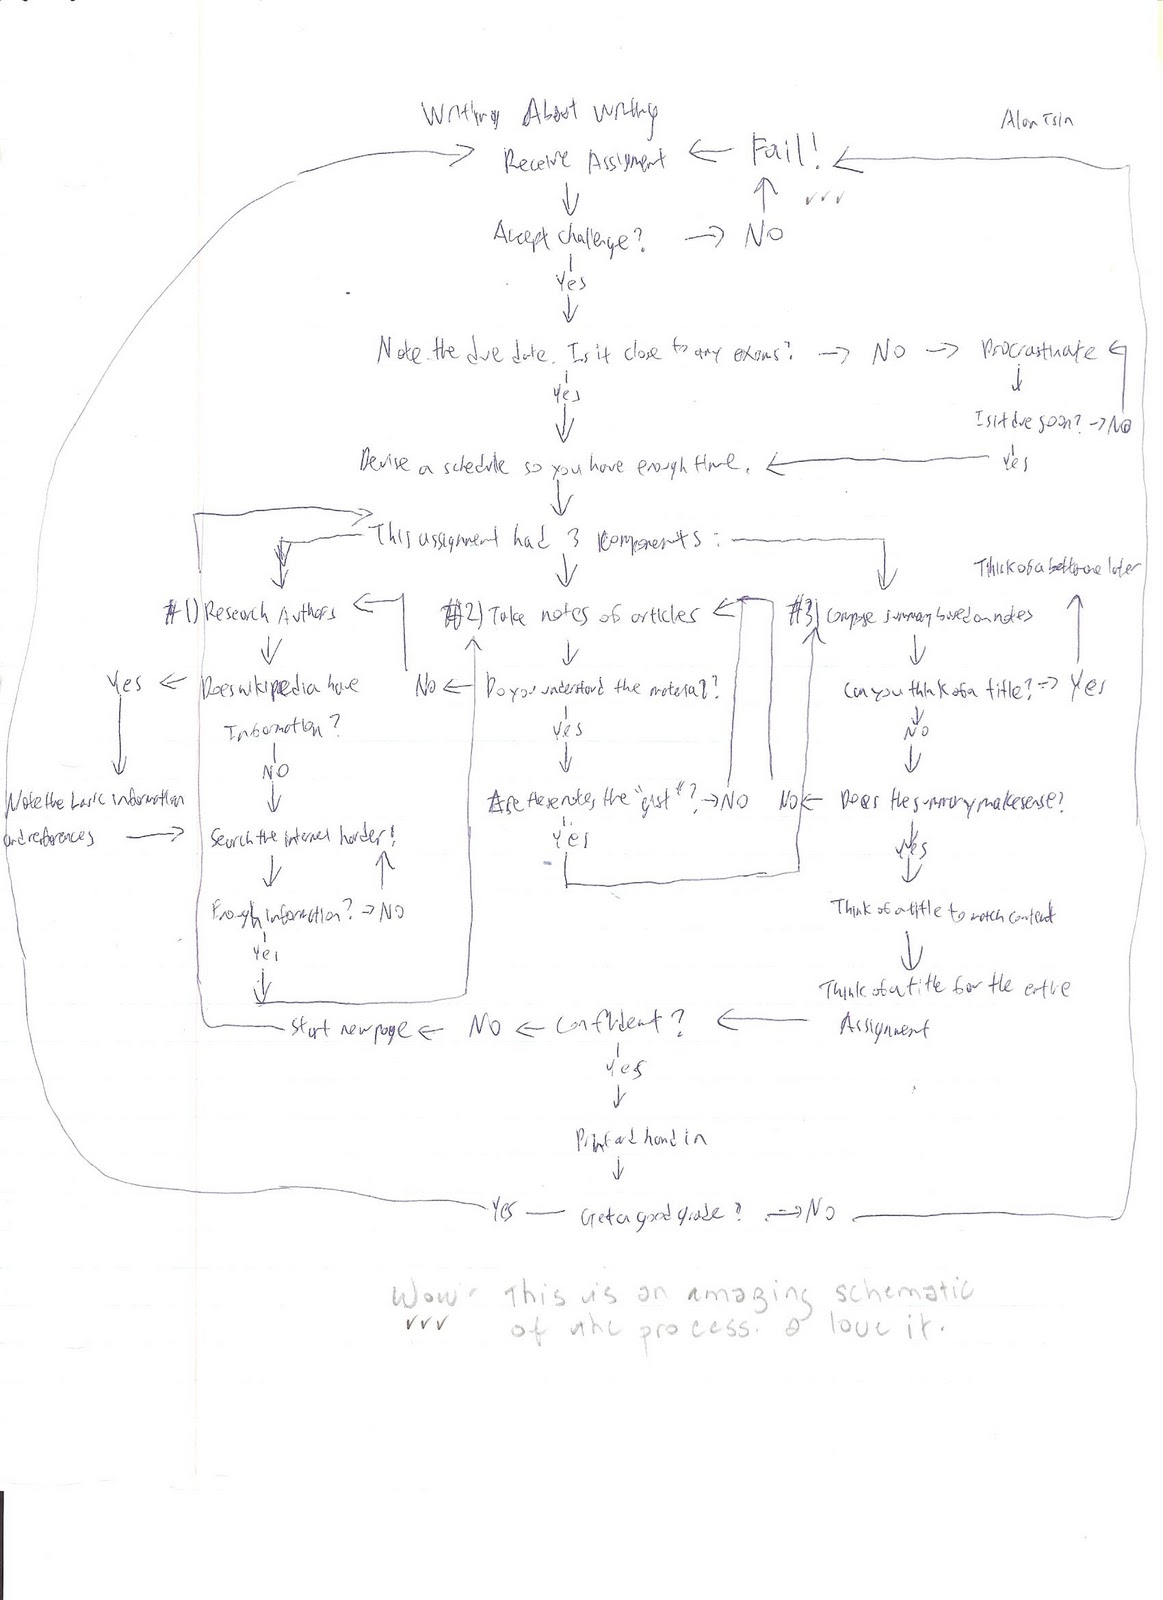 Writing About Writing
Alan Tsin
Receive Assignment ← Fail!
✓✓✓
Accept challenge? → NO
Yes
Note the due date. Is it close to any exams? → NO → Procrastinate
Yes
Is it due soon? → NO
Devise a schedule so you have enough time. ← Yes
This assignment had 3 components:
Think of a better one later
#1) Research Authors
#2) Take notes of articles
#3) Compose summary based on notes
Yes ← Does wikipedia have
Information?
No ← Do you understand the material?
Can you think of a title? → Yes
Yes
NO
NO
Note the basic information
and references
Are these notes the "gist"? → NO
No ← Does the summary make sense?
Search the internet harder!
Yes
Yes
Enough information? → NO
Think of a title to match content
Yes
Think of a title for the entire
Assignment
Start new page ← NO ← Confident?
Yes
Print and hand in
Yes — Get a good grade? → No
Wow! This is an amazing schematic
✓✓✓ of the process. I love it.